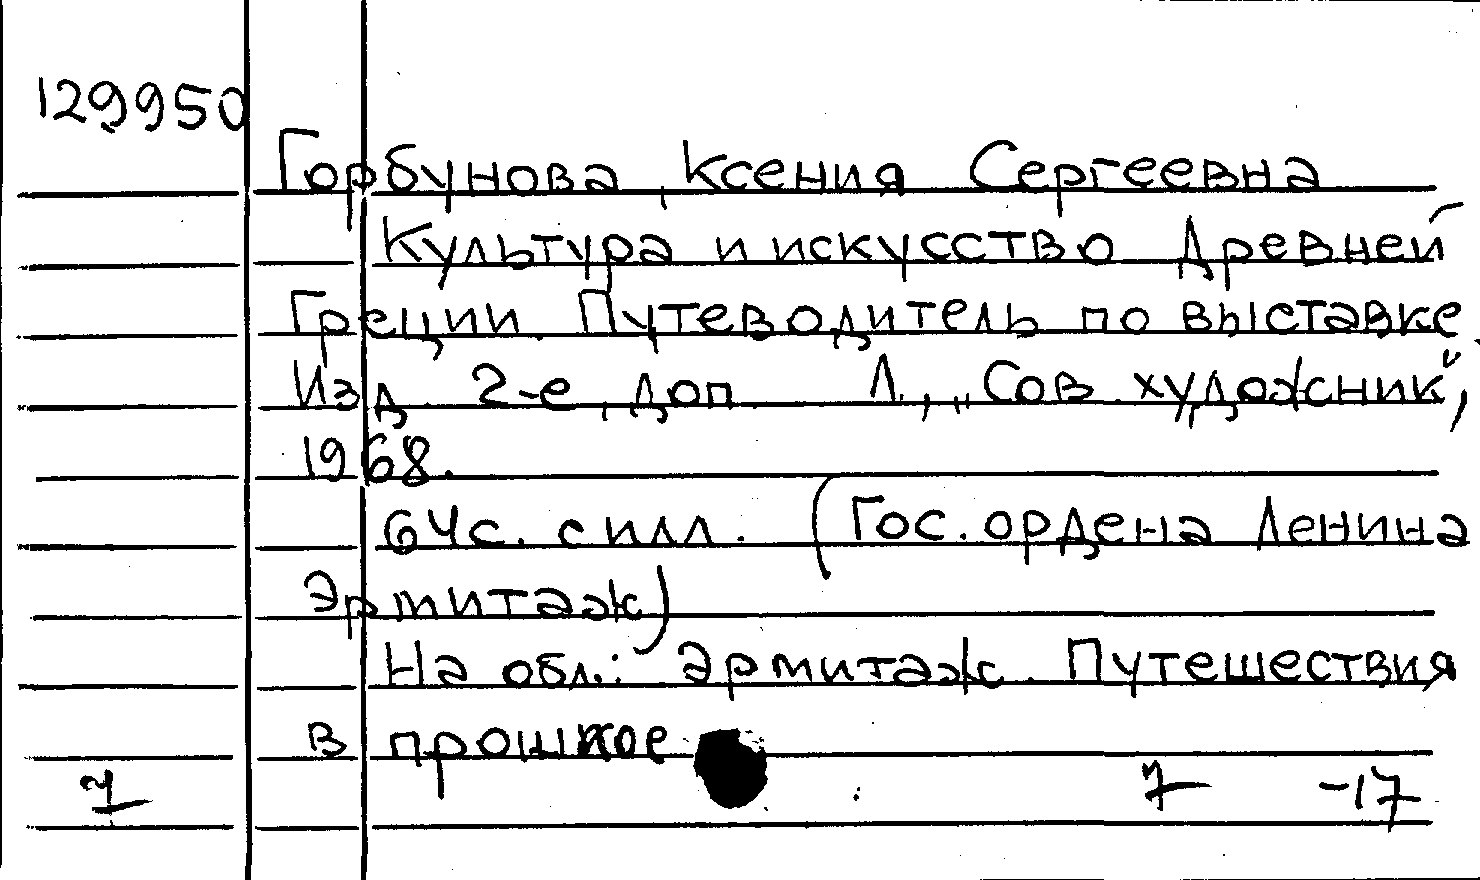 129950
Горбунова, Ксения Сергеевна
Культура и искусство Древней
Греции. Путеводитель по выставке.
Изд. 2-е, доп. Л., „Сов. художник",
1968.
64с. с илл. (Гос. ордена Ленина
Эрмитаж)
На обл.: Эрмитаж. Путешествия
в прошлое
7 7 -17